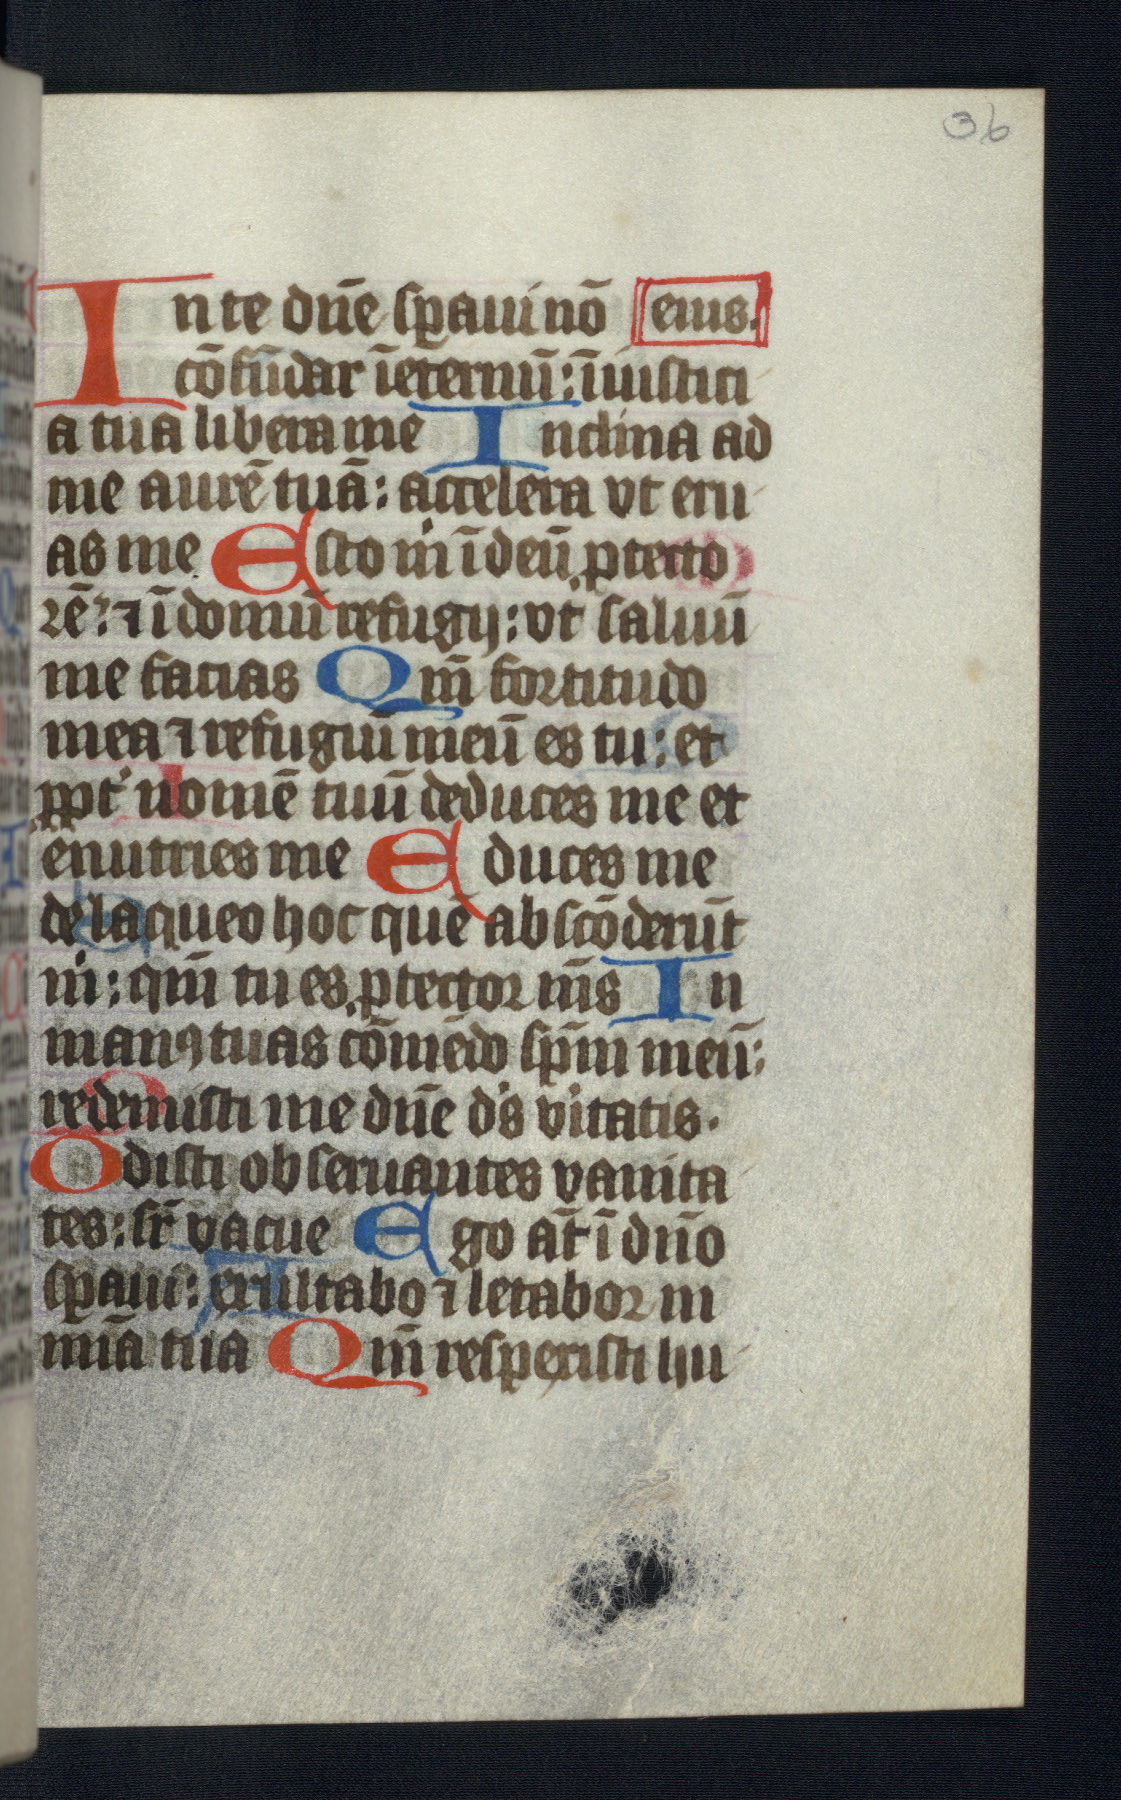 36
In te dn̄e sꝑaui nō eius.
cōfūdar ī eternū: ī iustici
a tua libera me Inclina ad
me aurē tuā: accelera vt eru
as me Esto m̄ ī deū ꝓtecto
rē: ⁊ ī domū refugij: vt saluū
me facias Qm̄ fortitudo
mea ⁊ refugiū meū es tu: et
ꝓpt̓ nomē tuū deduces me et
enutries me Educes me
de laqueo hoc quē absc̄oderūt
m̓: qm̄ tu es ꝓtector mẽs In
manꝰ tuas cōmēdo sp̄m meū:
redemisti me dn̄e dẽs v̓itatis.
Odisti obseruantes vanita
tes: sr̄ vacue Ego āt ī dn̄o
sꝑaui: exultabo ⁊ letabor in
mīa tua Qm̄ respexisti hu